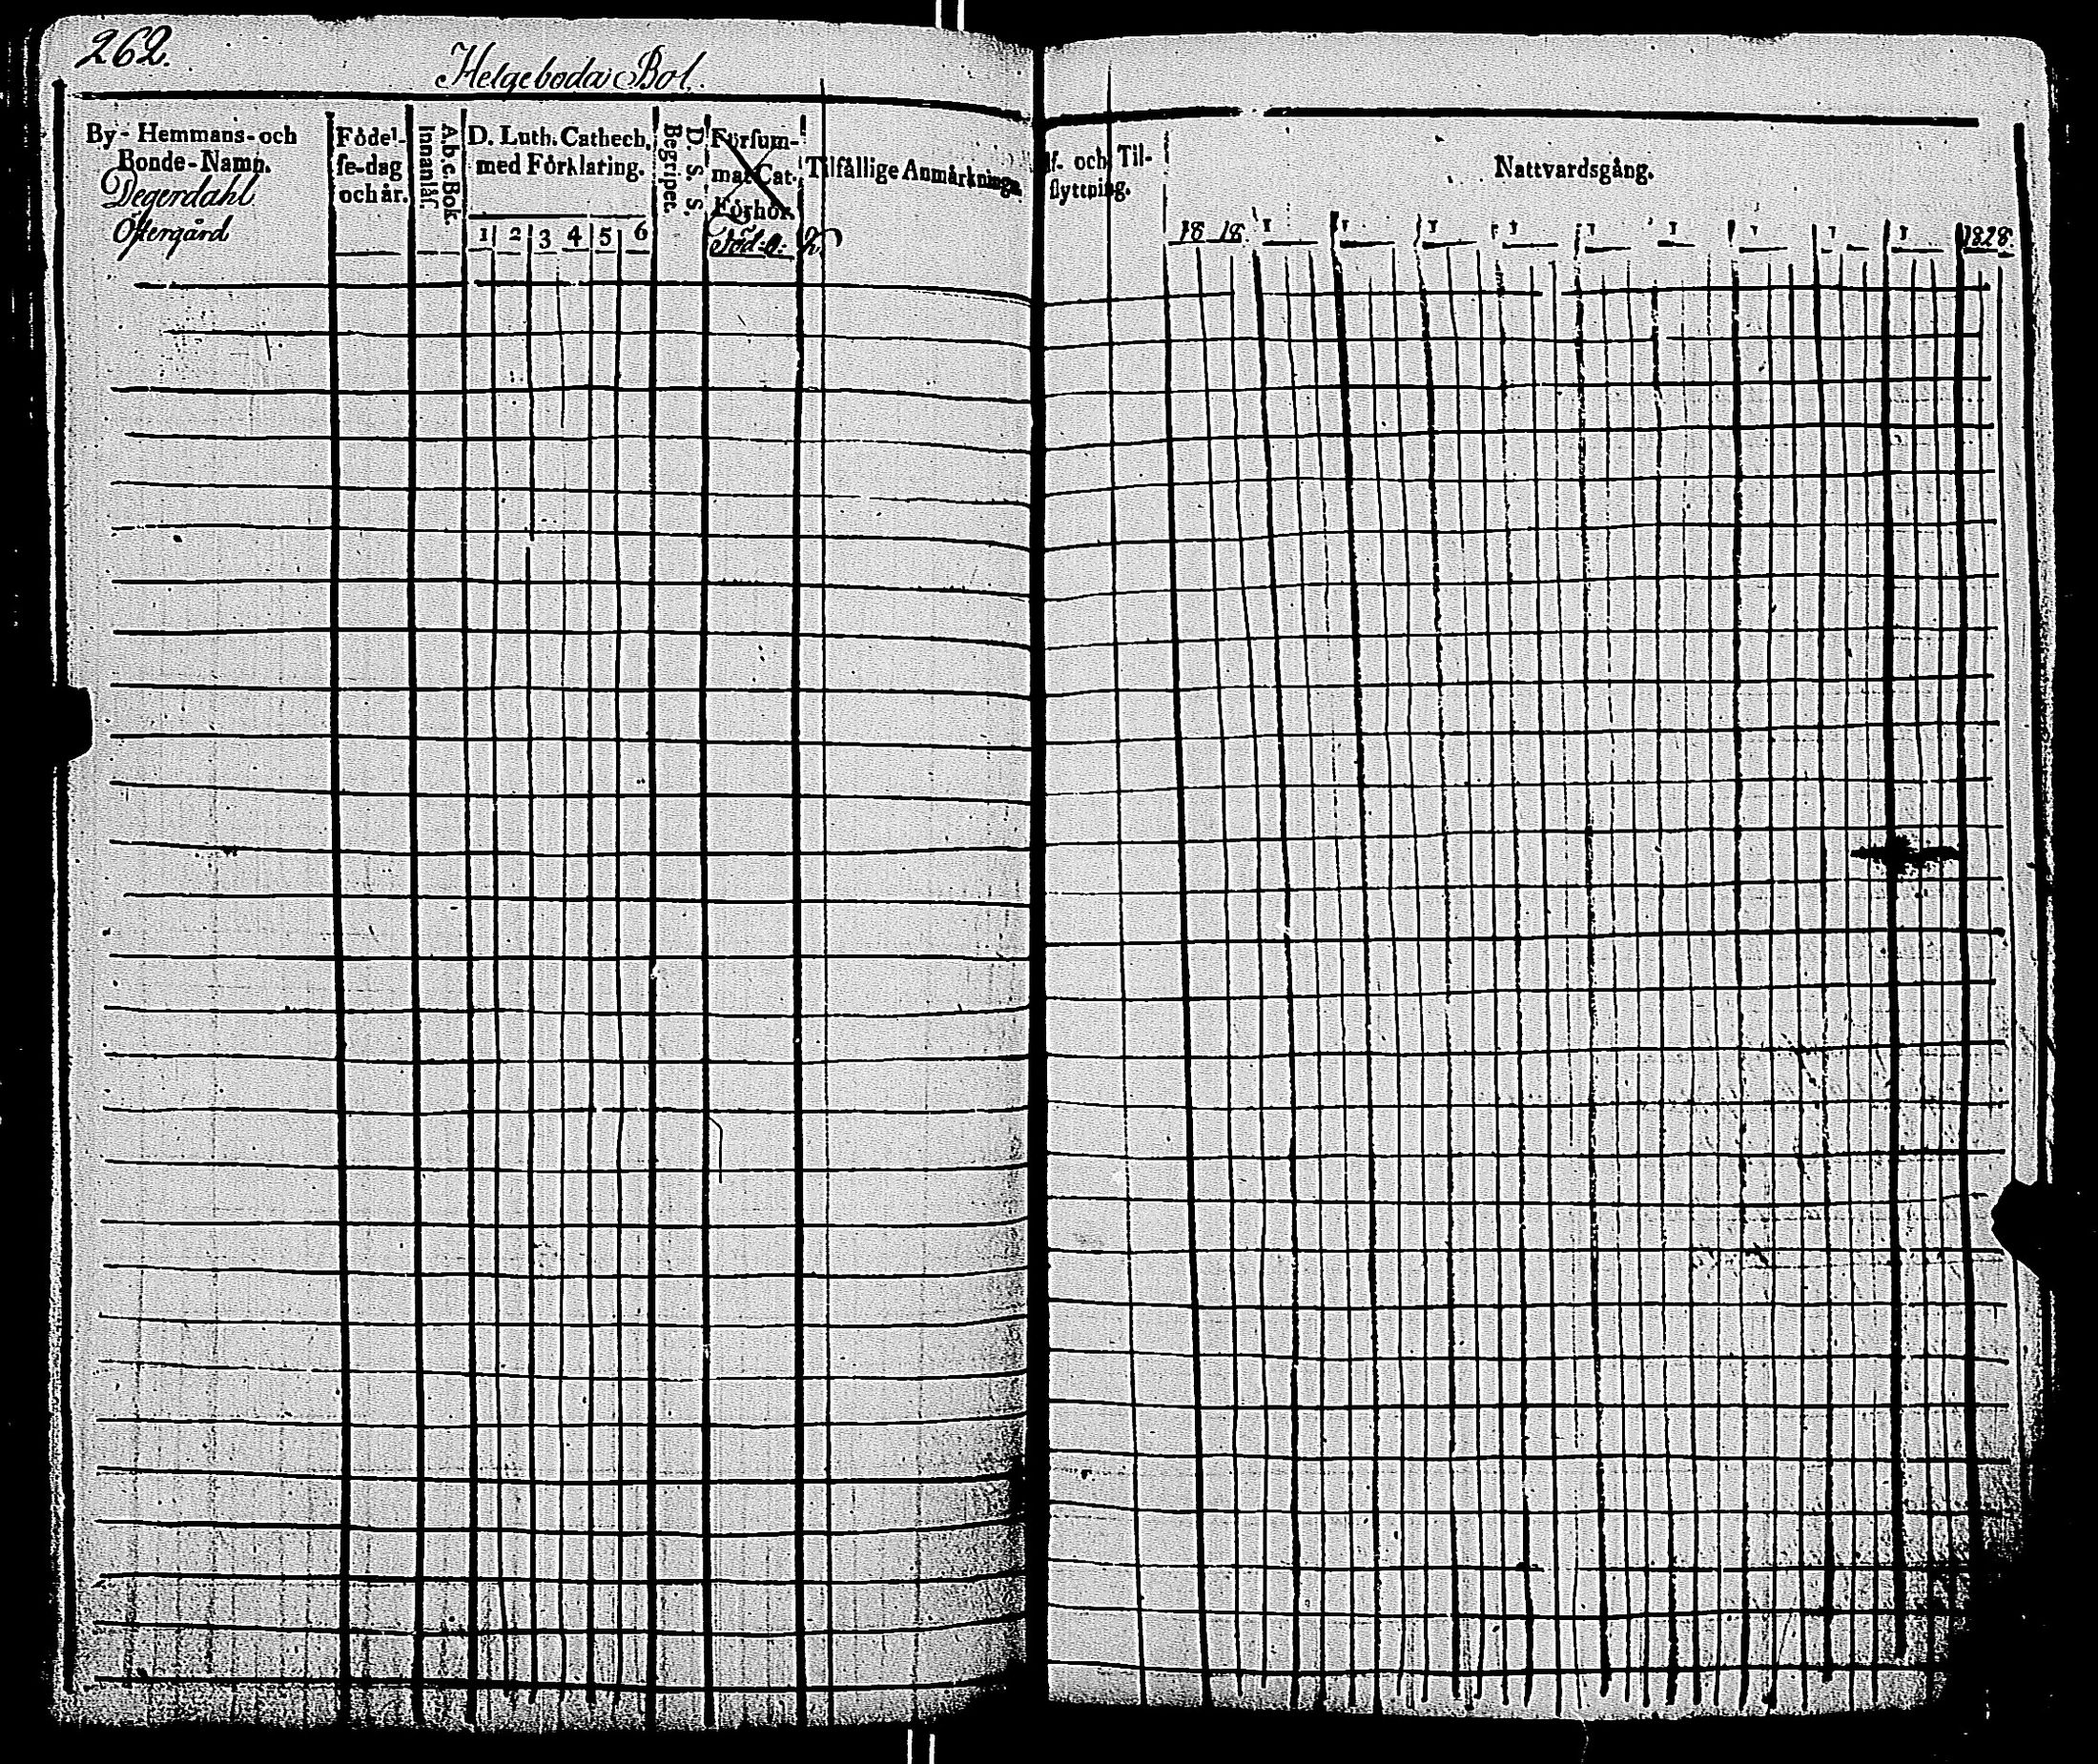 262.
Helgeboda Bol.
By-Hemmans-och
Bonde-Namn.
Degerdahl
Östergård
Fôdel-
se-dag
och år.
A.b.c. Bok.
Innanläs.
D. Luth. Cathech.
med Fôrklaring.
1 2 3 4 5 6
D. S. S. S.
Begripet.
Försum-
mat Cat.
Förhör.
Föd. o.
Tilfällige Anmärkninga
f- och Til-
flyttning.
Nattvardsgång.
18 18
1 1 1 1 1 1 1 1 1
1828.